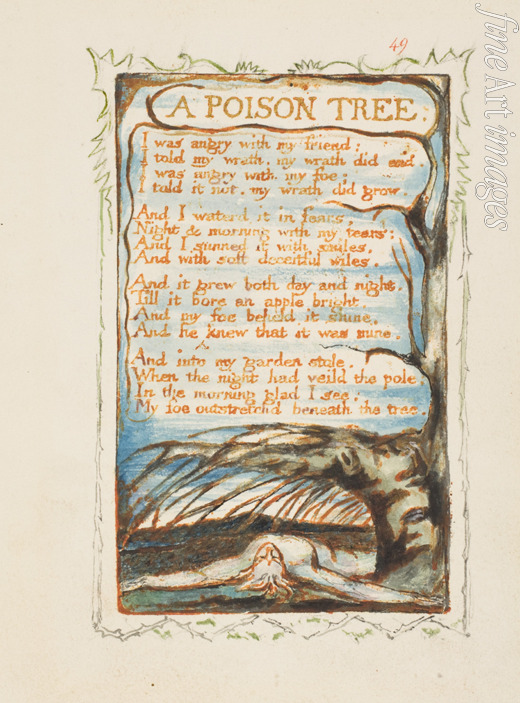 49
A POISON TREE.
I was angry with my friend:
I told my wrath, my wrath did end.
I was angry with my foe:
I told it not, my wrath did grow.
And I waterd it in fears,
Night & morning with my tears:
And I sunned it with smiles,
And with soft deceitful wiles.
And it grew both day and night,
Till it bore an apple bright.
And my foe beheld it shine,
And he knew that it was mine.
And into my garden stole,
When the night had veild the pole;
In the morning glad I see,
My foe outstretchd beneath the tree.
fine Art images